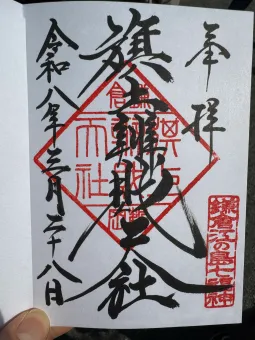 奉拝
旗上辨財天社
令和八年三月二十八日
鎌倉江の島七福神